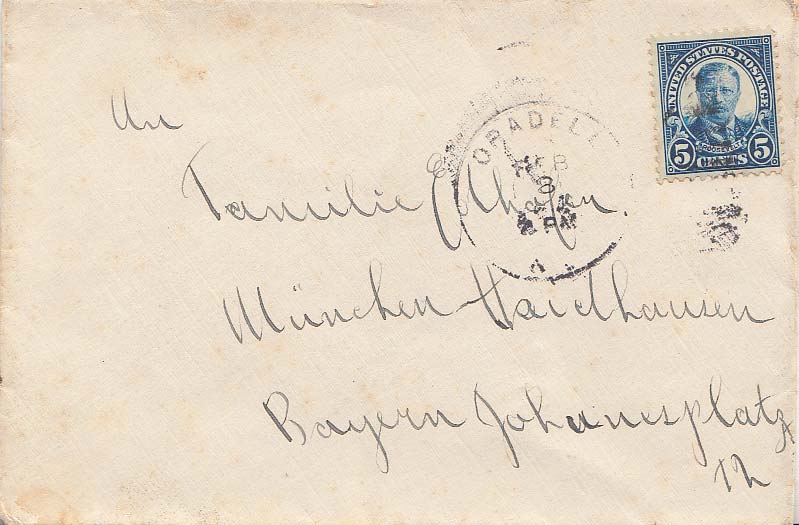 UNITED STATES POSTAGE
ROOSEVELT
5 CENTS 5
ORADELL
FEB
8
An
Familie
München Haidhausen
Bayern Johanesplatz
12